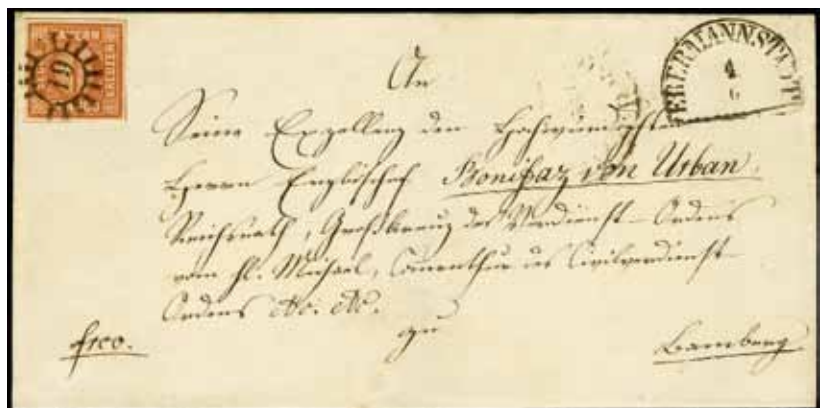 BAYERN
KREUZER
19
EBERMANNSTADT
4
6
An
Seine Exzellenz den Hochwürdigsten
Herrn Erzbischof Bonifaz von Urban,
Reichsrath, Großkreuz des Verdienst-Ordens
vom hl. Michael, Comenthur des Civilverdienst-
Ordens etc. etc.
zu
frco.
Bamberg